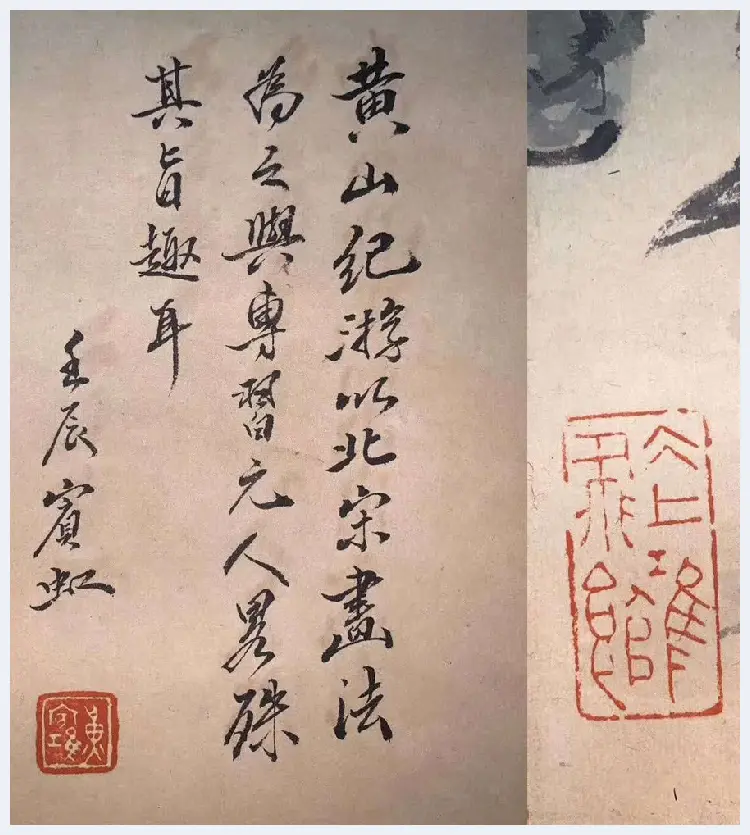 黄山纪游以北宋畫法
為之與專習元人畧殊
其旨趣耳
壬辰賓虹